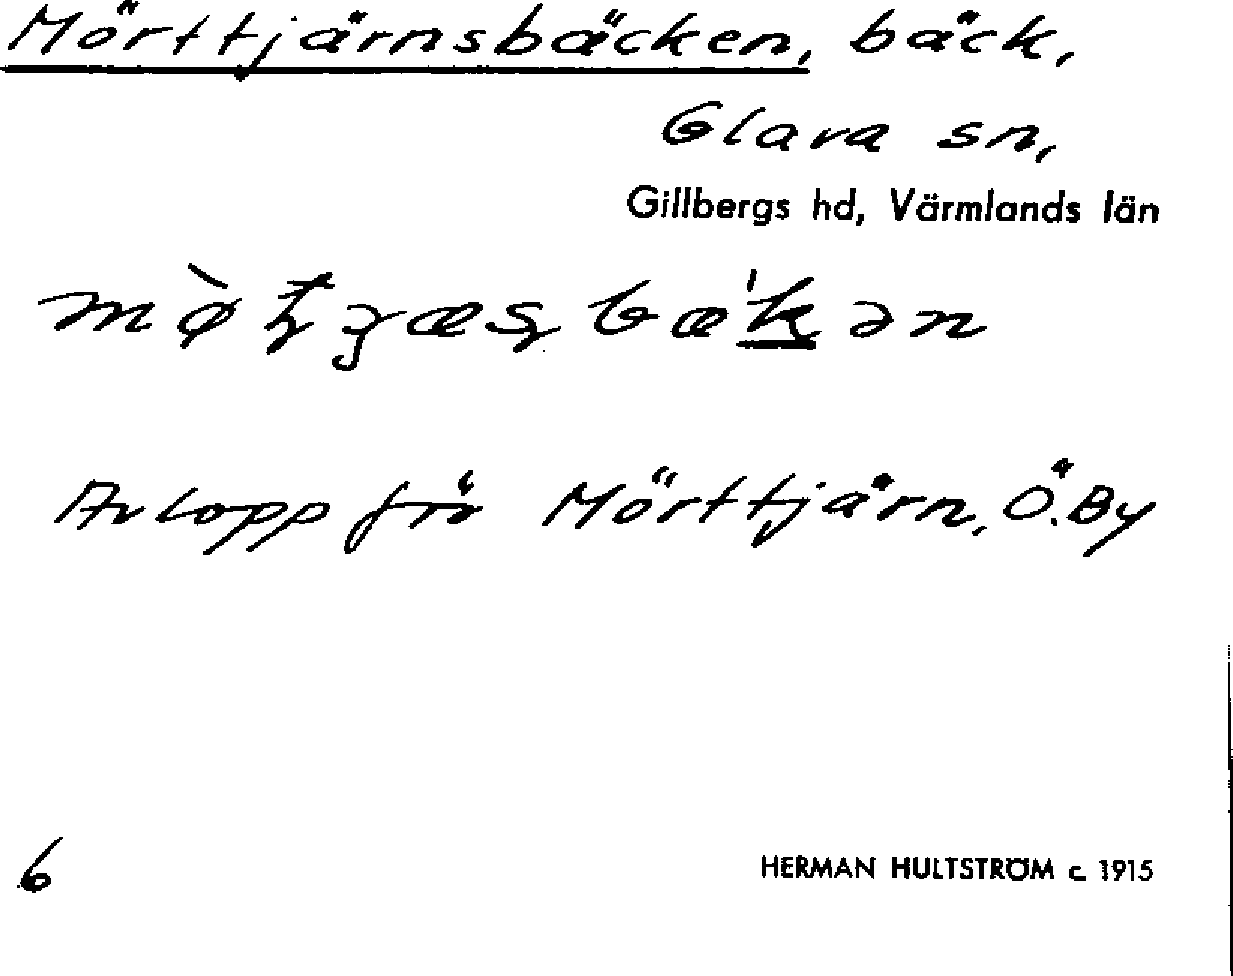 Mörttjärnsbäcken, bäck,
Glava sn,
Gillbergs hd, Värmlands län
Avlopp frå Mörttjärn, Ö. By
6
HERMAN HULTSTRÖM c. 1915